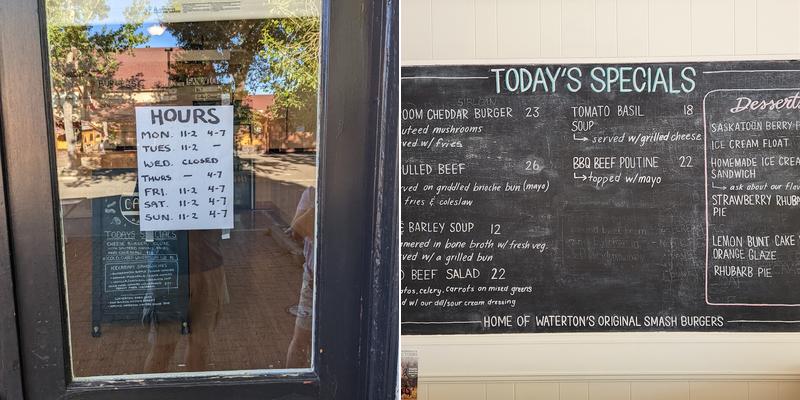 HOURS
MON. 11-2 4-7
TUES. 11-2 —
WED. CLOSED
THURS — 4-7
FRI. 11-2 4-7
SAT. 11-2 4-7
SUN. 11-2 4-7
CA
TODAYS SPECIALS
TODAY'S SPECIALS
SIRLOIN
OOM CHEDDAR BURGER 23
uteed mushrooms
ved w/fries
ULLED BEEF 26
rved on griddled brioche bun (mayo)
fries & coleslaw
& BARLEY SOUP 12
mmered in bone broth w/ fresh veg.
ved w/ a grilled bun
D BEEF SALAD 22
atos, celery, carrots on mixed greens
d w/ our dill/sour cream dressing
TOMATO BASIL 18
SOUP
served w/grilled cheese
BBQ BEEF POUTINE 22
topped w/mayo
Desserts
SASKATOON BERRY P
ICE CREAM FLOAT
HOMEMADE ICE CREA
SANDWICH
ask about our flav
STRAWBERRY RHUBA
PIE
LEMON BUNT CAKE
ORANGE GLAZE
RHUBARB PIE
HOME OF WATERTON'S ORIGINAL SMASH BURGERS